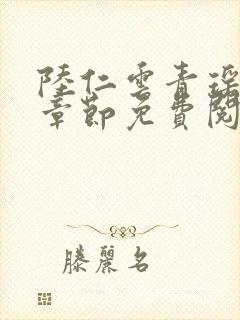 陸仁雲青瑶
章節免費閱
滕麗名